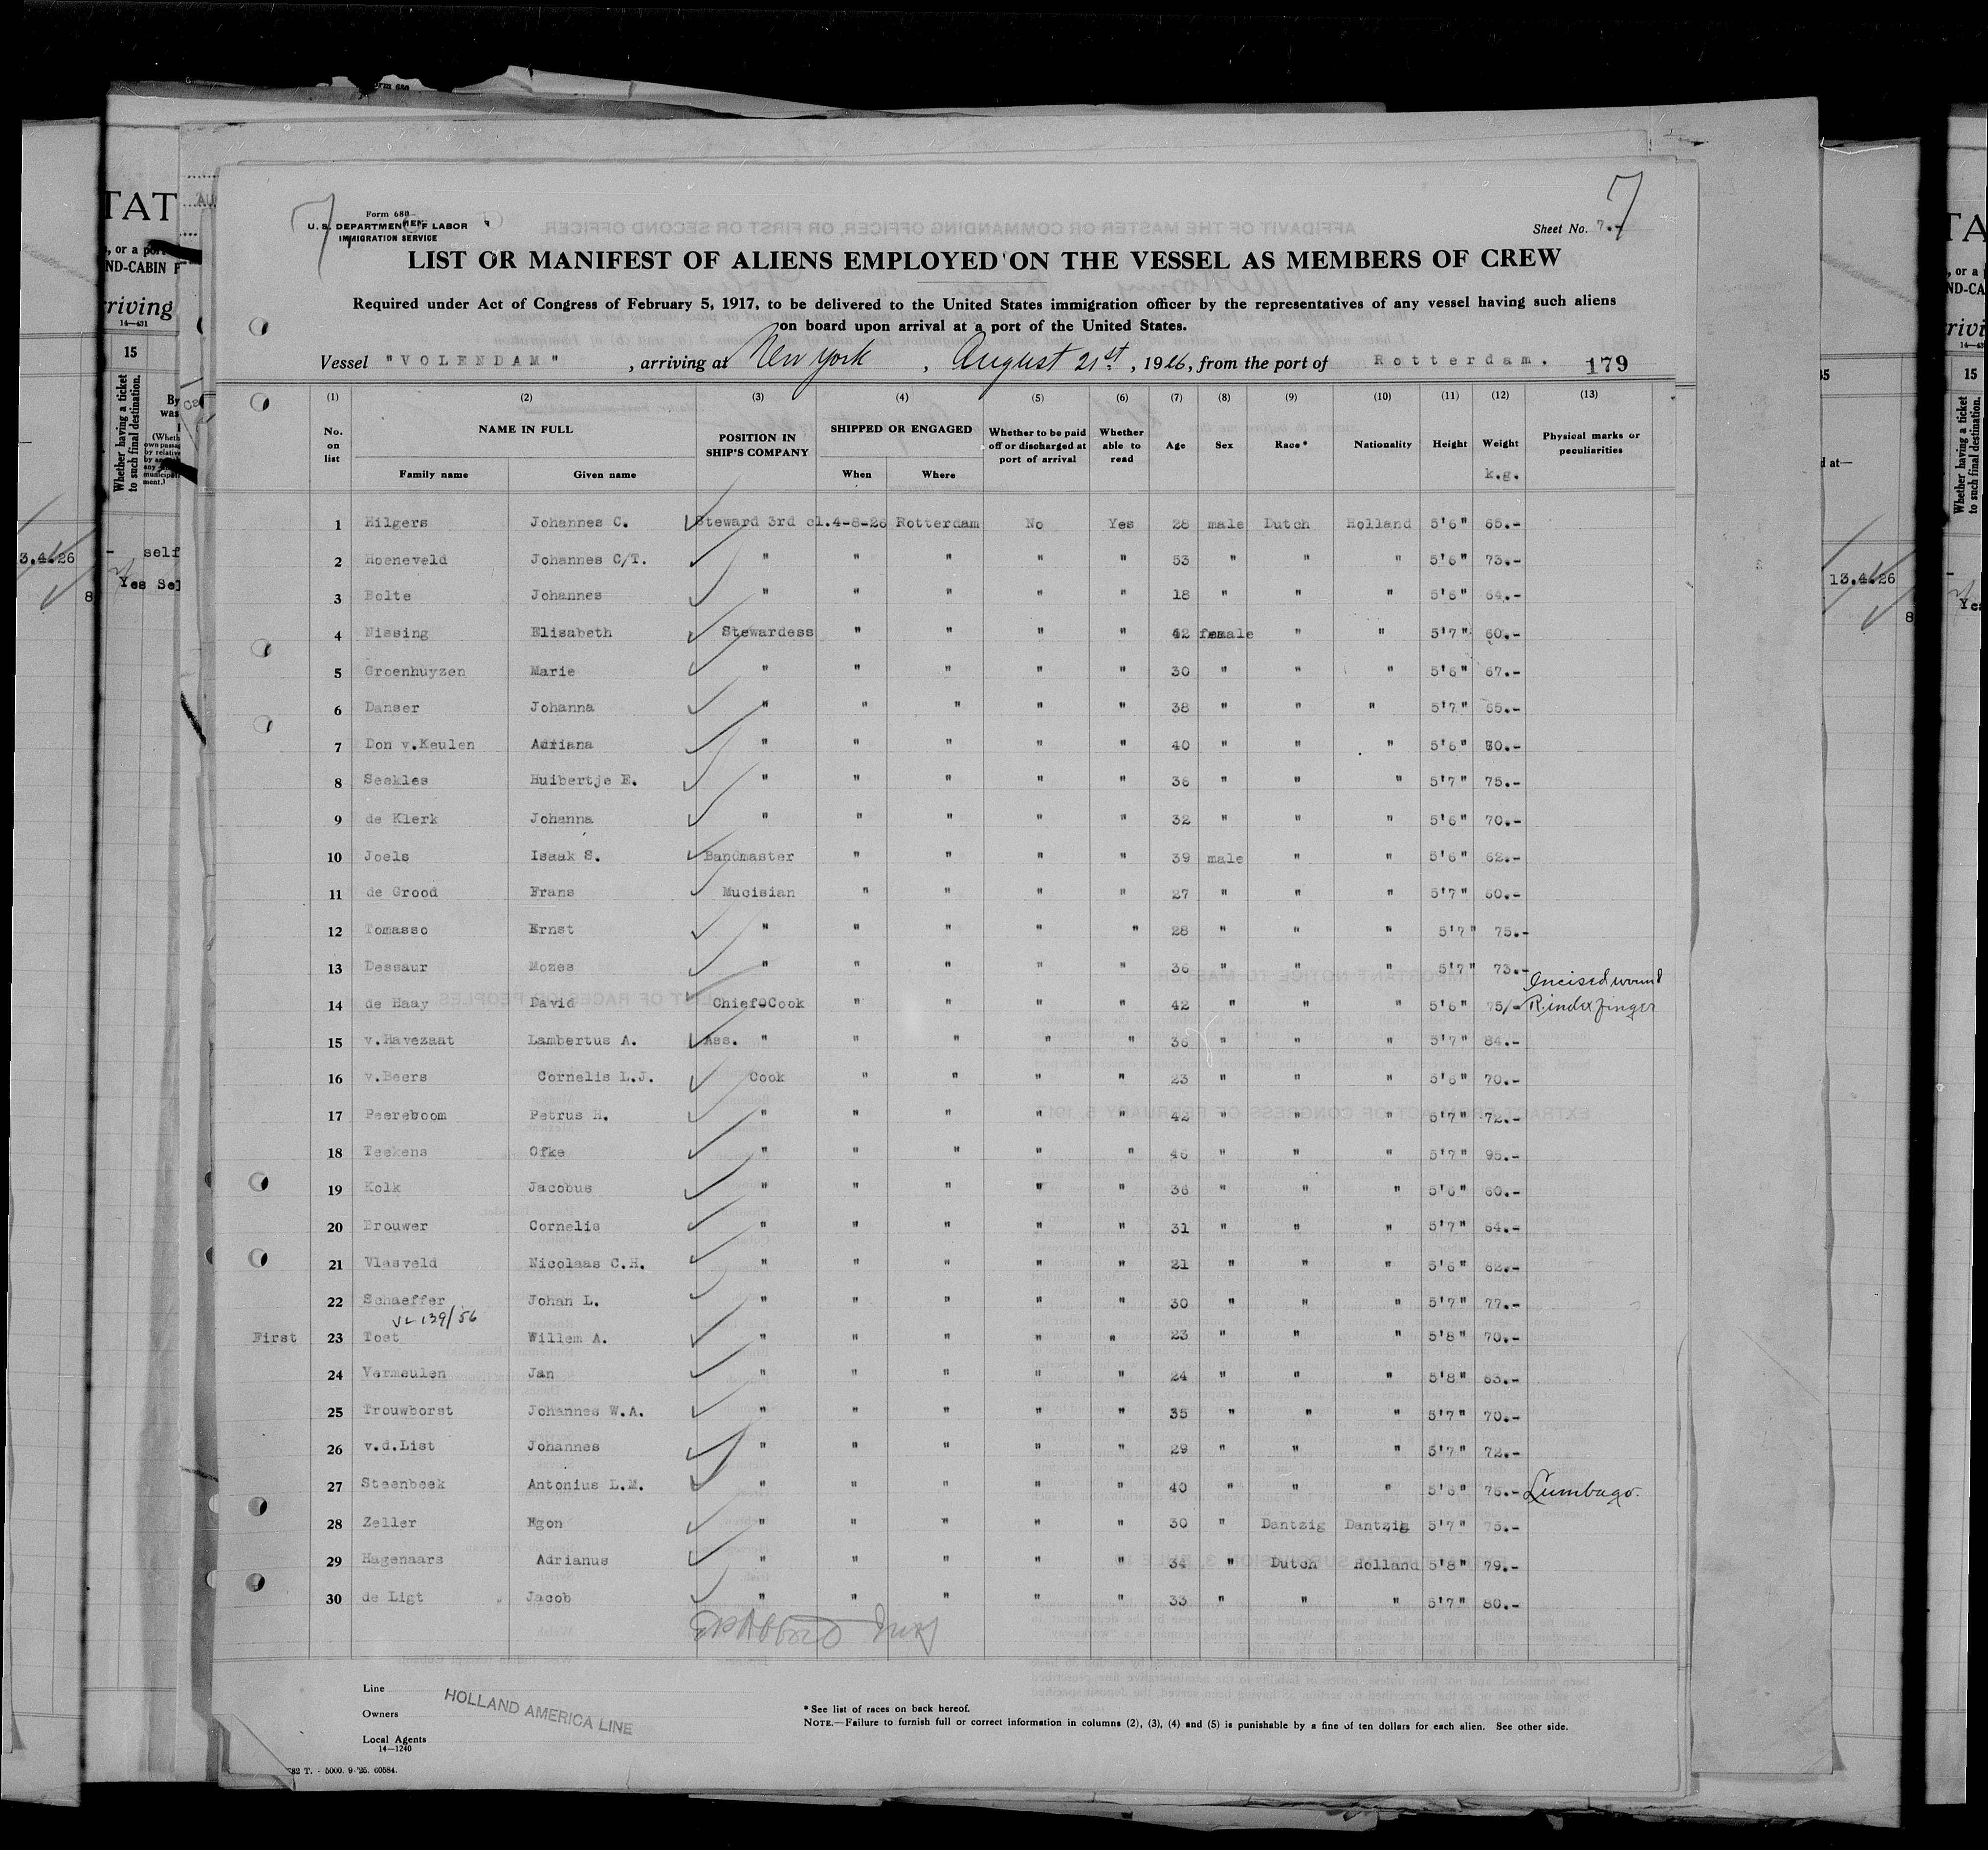 Form 680
U. S. DEPARTMENT OF LABOR
IMMIGRATION SERVICE
7
7
Sheet No. 7.-
LIST OR MANIFEST OF ALIENS EMPLOYED ON THE VESSEL AS MEMBERS OF CREW
Required under Act of Congress of February 5, 1917, to be delivered to the United States immigration officer by the representatives of any vessel having such aliens
on board upon arrival at a port of the United States.
Vessel "VOLENDAM", arriving at New York, August 21st, 1926, from the port of Rotterdam. 179
(1) (2) (3) (4) (5) (6) (7) (8) (9) (10) (11) (12) (13)
No. on list NAME IN FULL Family name Given name POSITION IN SHIP'S COMPANY SHIPPED OR ENGAGED When Where Whether to be paid off or discharged at port of arrival Whether able to read Age Sex Race* Nationality Height Weight k.g. Physical marks or peculiarities
1 Hilgers Johannes C. Steward 3rd cl. 4-8-26 Rotterdam No Yes 28 male Dutch Holland 5'6" 65.-
2 Hoeneveld Johannes C/T. " " " " " 53 " " " 5'6" 73.-
3 Bolte Johannes " " " " " 18 " " " 5'6" 64.-
4 Nissing Elisabeth Stewardess " " " " 42 female " " 5'7" 60.-
5 Groenhuyzen Marie " " " " " 30 " " " 5'6" 67.-
6 Danser Johanna " " " " " 38 " " " 5'7" 65.-
7 Don v.Keulen Adriana " " " " " 40 " " " 5'6"
8 Seekles Huibertje E. " " " " " 36 " " " 5'7" 75.-
9 de Klerk Johanna " " " " " 32 " " " 5'6" 70.-
10 Joels Isaak S. Bandmaster " " " " 39 male " " 5'6" 62.-
11 de Grood Frans Mucisian " " " " 27 " " " 5'7" 60.-
12 Tomasso Ernst " " " " " 28 " " " 5'7" 75.-
13 Dessaur Mozes " " " " " 36 " " " 5'7" 73.-
14 de Haay David Chief-Cook " " " " 42 " " " 5'6" 75/- Incised wound R. index finger
15 v.Havezaat Lambertus A. Ass. " " " " " 36 " " " 5'7" 84.-
16 v.Beers Cornelis L.J. Cook " " " " 23 " " " 5'6" 70.-
17 Peereboom Petrus H. " " " " " 42 " " " 5'7" 72.-
18 Teekens Ofke " " " " " 46 " " " 5'7" 95.-
19 Kolk Jacobus " " " " " 36 " " " 5'6" 60.-
20 Brouwer Cornelis " " " " " 31 " " " 5'7" 64.-
21 Vlasveld Nicolaas C.H. " " " " " 21 " " " 5'6" 62.-
22 Schaeffer Johan L. " " " " " 30 " " " 5'7" 77.-
VL 139/56
First 23 Toet Willem A. " " " " " 23 " " " 5'8" 70.-
24 Vermeulen Jan " " " " " 24 " " " 5'8" 63.-
25 Trouwborst Johannes W.A. " " " " " 35 " " " 5'7" 70.-
26 v.d.List Johannes " " " " " 29 " " " 5'7" 72.-
27 Steenbeek Antonius L.M. " " " " " 40 " " " 76.- Lumbago.
28 Zeller Egon " " " " " 30 " Dantzig Dantzig 5'7" 75.-
29 Hagenaars Adrianus " " " " " 34 " Dutch Holland 5'8" 79.-
30 de Ligt Jacob " " " " " 33 " " " 5'7" 80.-
Line
Owners
Local Agents
HOLLAND AMERICA LINE
14—1240
*See list of races on back hereof.
NOTE.—Failure to furnish full or correct information in columns (2), (3), (4) and (5) is punishable by a fine of ten dollars for each alien. See other side.
82 T. - 5000. 9-'25. 60584.
TAT
, or a port
ND-CABIN
rriving
14—431
15
Whether having a ticket to such final destination.
3.4.26
self
Yes Sel
13.4.26
15